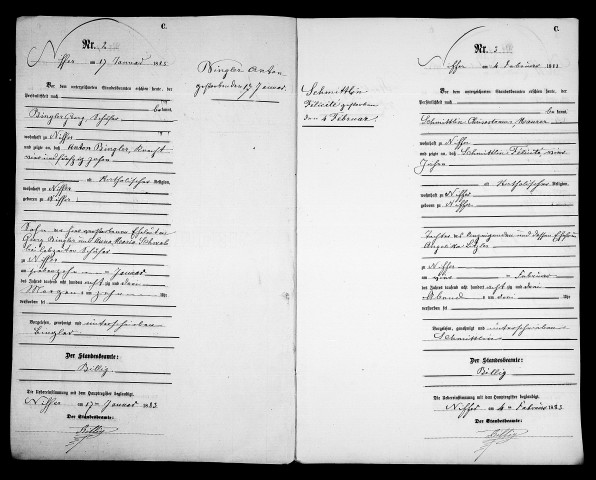 C.
Nr. 2
Niffer am 17 Januar 188
Vor dem unterzeichneten Standesbeamten erschien heute, der
Persönlichkeit nach
kannt,
Bingler Georg, Schäfer
wohnhaft zu Niffer
und zeigte an, daß Anton Bingler, Knecht
vier und fünfzig Jahre
Katholischer Religion,
wohnhaft zu Niffer
geboren zu Niffer
Sohn
Georg Bingler und Anna Maria Schwab
zu Niffer
am Januar
des Jahres tausend acht hundert acht zig und drei
Morgens zehn Uhr
verstorben sei
Vorgelesen, genehmigt und unterschrieben
Bingler
Der Standesbeamte:
Billig
Die Uebereinstimmung mit dem Hauptregister beglaubigt.
Niffer am 17ten Januar 1883
Der Standesbeamte:
Billig
Bingler Anton
gestorben den 17 Januar.
C.
Nr. 3
Niffer am 4 Februar 188
Schmittlin
Felicité gestorben
den 4 Februar
Vor dem unterzeichneten Standesbeamten erschien heute, der
Persönlichkeit nach
kannt,
Schmittlin Maurer
wohnhaft zu Niffer
und zeigte an, daß Schmittlin Felicité, vier
Jahre
Katholischer Religion,
wohnhaft zu Niffer
geboren zu Niffer
Tochter des Anzeigenden und dessen Ehefrau
Angelika
zu Niffer
am vier Februar
des Jahres tausend acht hundert acht zig und drei
Abend um drei Uhr
verstorben sei
Vorgelesen, genehmigt und unterschrieben
Schmittlin
Der Standesbeamte:
Billig
Die Uebereinstimmung mit dem Hauptregister beglaubigt.
Niffer am 4ten Februar 1883
Der Standesbeamte:
Billig